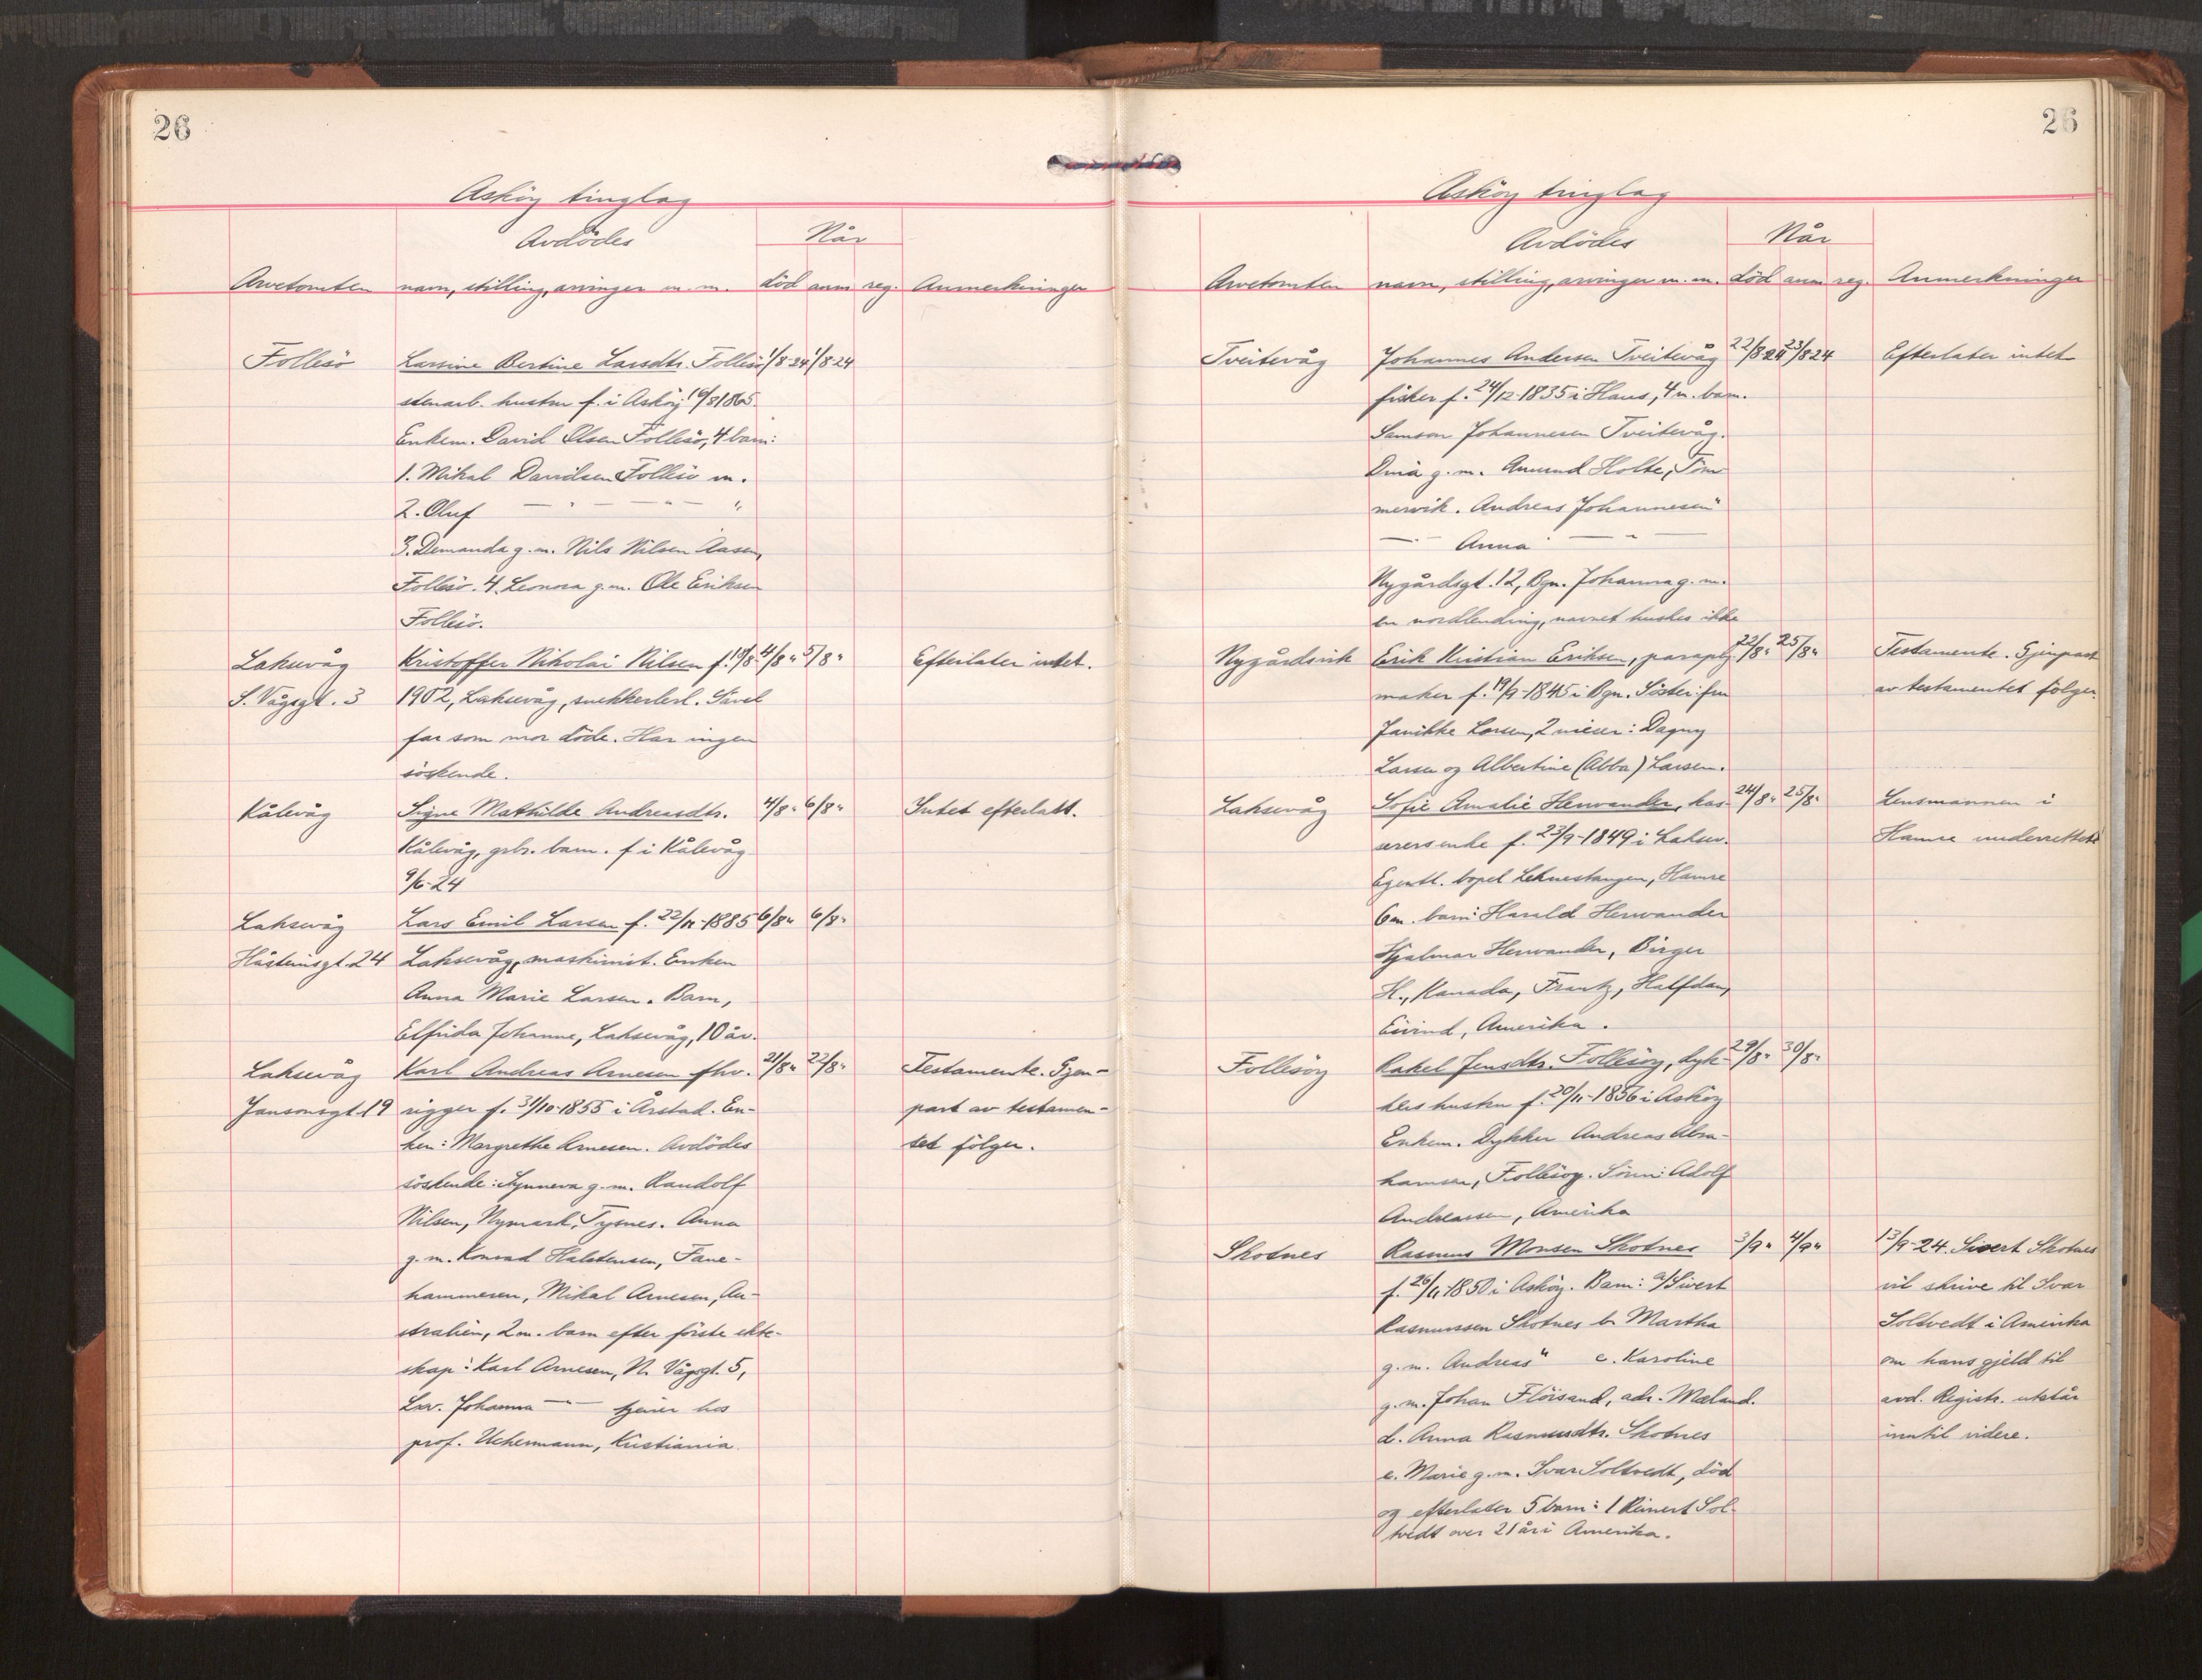 26
Asköy tinglag
Avdödes
Når
Arvetomten navn, stilling, arvinger m. m. död anm reg. Anmerkninger
Follesö Larsine Bertine Larsdtr. Follesö 1/8-24 1/8-24
stenarb. hustru f. i Asköy 16/8 1865.
Enkem. David Olsen Follesö, 4 barn:
1. Mikal Davidsen Follesö m.
2. Oluf — " — — " — "
3. Demanda g. m. Nils Nilsen Aasen,
Follesö. 4. Leonora g. m. Ole Eriksen
Follesö.
Laksevåg Kristoffer Nikolai Nilsen f. 19/8 4/8 " 5/8 " Efterlater intet.
S. Vågsgt. 3 1902, Laksevåg, snekkerlerl. Såvel
far som mor döde. Har ingen
söskende.
Kålevåg Signe Mathilde Andreasdtr. 4/8 " 6/8 " Intet efterlatt.
Kålevåg, grbr. barn. f i Kålevåg
9/6-24
Laksevåg Lars Emil Larsen f. 22/11-1885 6/8 " 6/8 "
Håsteinsgt. 24 Laksevåg, maskinist. Enken
Anna Marie Larsen. Barn,
Elfrida Johanne, Laksevåg, 10 år.
Laksevåg Karl Andreas Arnesen fhv. 21/8 " 22/8 " Testamente. Gjen-
Jansonsgt. 19 rigger f. 31/10-1855 i Årstad. En- part av testamen-
ken: Margrethe Arnesen. Avdödes tet fölger.
söskende: Synneva g. m. Randolf
Nilsen, Nymark, Tysnes. Anna
g. m. Konrad Halstensen, Fane-
hammeren, Mikal Arnesen, Au-
stralien, 2 m. barn efter förste ekte-
skap: Karl Arnesen, N. Vågsgt. 5,
Lxv. Johanna — " — tjener hos
prof. Uchermann, Kristiania.
26
Asköy tinglag
Avdödes
Når
Arvetomten navn, stilling, arvinger m. m. död anm reg. Anmerkninger
Tveitevåg Johannes Andersen Tveitevåg 22/8 24 23/8 24 Efterlater intet
fisker f. 24/12-1835 i Haus, 4 m. barn.
Samson Johannesen Tveitevåg.
Dina g. m. Amund Holte, Töm
mervik. Andreas Johannesen "
— " — Anna — " —
Nygårdsgt. 12, Bgn. Johanna g. m.
en nordlending, navnet huskes ikke
Nygårdsvik Erik Kristian Eriksen, paraply- 22/8 " 25/8 " Testamente. Gjenpart
maker f. 19/9-1845 i Bgn. Söster: fru av testamentet fölger.
Janikke Larsen, 2 nieser: Dagny
Larsen og Albertine (Abba) Larsen.
Laksevåg Sofie Amalie Herwander, kas- 24/8 " 25/8 " Lensmannen i
serersenke f. 23/9-1849 i Laksev. Hamre underrettet
Egentl. bopel Leknestangen, Hamre
6 m. barn: Harald Herwander
Hjalmar Herwander, Birger
H., Kanada, Frantz, Halfdan,
Eivind, Amerika.
Follesöy Rakel Jensdtr. Follesöy, dyk- 29/8 " 30/8 "
kers hustru f. 20/11-1856 i Asköy
Enkem. Dykker Andreas Abra-
hamsen, Follesöy. Sönn: Adolf
Andreassen, Amerika
Skotnes Rasmus Monsen Skotnes 3/9 " 4/9 " 13/9-24. Sivert Skotnes
f. 26/11-1850 i Asköy. Barn: a/ Sivert vil skrive til Ivar
Rasmussen Skotnes b. Martha Soltvedt i Amerika
g. m. Andreas " c. Karoline om hans gjeld til
g. m. Johan Flöisand, adr. Mæland. avd. Registr. utstår
d. Anna Rasmusdtr. Skotnes inntil videre.
e. Marie g. m. Ivar Soltvedt, död
og efterlater 5 barn: 1 Reinert Sol-
tvedt over 21 år i Amerika.